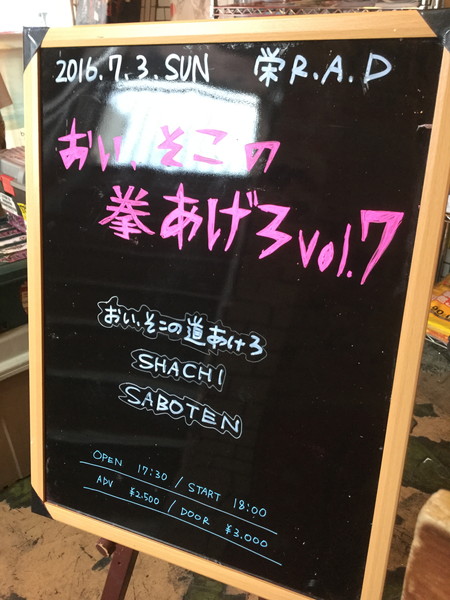 2016.7.3.SUN 栄R.A.D
おい、そこの
拳あげろvol.7
おい、そこの道あけろ
SHACHI
SABOTEN
OPEN 17:30 / START 18:00
ADV ¥2.500 / DOOR ¥3.000